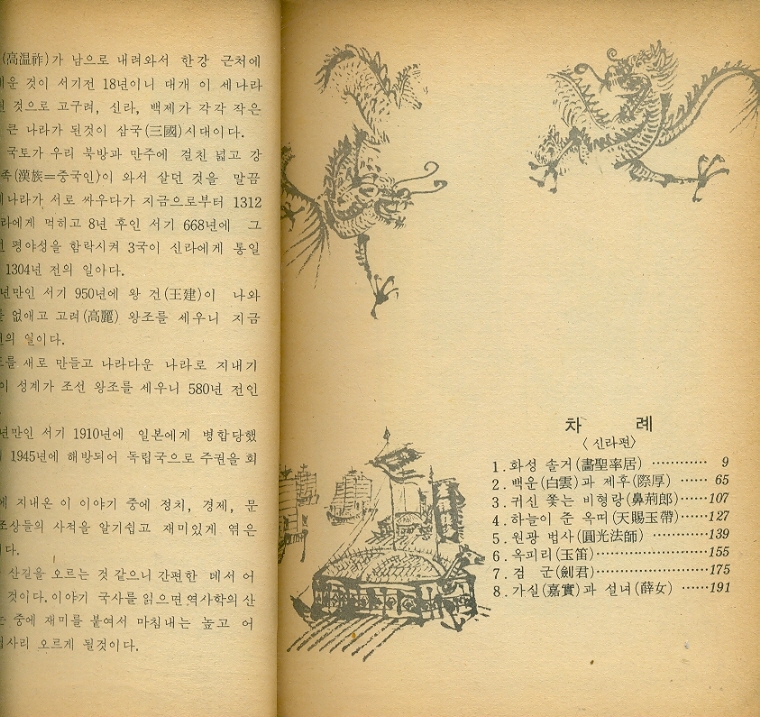 (高温祚)가 남으로 내려와서 한강 근처에
것이 서기전 18년이니 대개 이 세나라
것으로 고구려, 신라, 백제가 각각 작은
큰 나라가 된것이 삼국(三國)시대이다.
국토가 우리 북방과 만주에 걸친 넓고 강
족(漢族=중국인)이 와서 살던 것을 말끔
세나라가 서로 싸우다가 지금으로부터 1312
라에게 먹히고 8년 후인 서기 668년에 그
평야성을 함락시켜 3국이 신라에게 통일
1304년 전의 일아다.
년만인 서기 950년에 왕 건(王建)이 나와
를 없애고 고려(高麗) 왕조를 세우니 지금
전의 일이다.
를 새로 만들고 나라다운 나라로 지내기
이 성계가 조선 왕조를 세우니 580년 전인
년만인 서기 1910년에 일본에게 병합당했
1945년에 해방되어 독립국으로 주권을 회
에 지내온 이 이야기 중에 정치, 경제, 문
조상들의 사적을 알기쉽고 재미있게 엮은
다.
산길을 오르는 것 같으니 간편한 데서 어
것이다. 이야기 국사를 읽으면 역사학의 산
는 중에 재미를 붙여서 마침내는 높고 어
사리 오르게 될것이다.
차 례
〈신라편〉
1. 화성 솔거(畵聖率居) ············ 9
2. 백운(白雲)과 제후(際厚) ······ 65
3. 귀신 쫓는 비형랑(鼻荊郎) ······107
4. 하늘이 준 옥띠(天賜玉帶) ······127
5. 원광 법사(圓光法師) ············139
6. 옥피리(玉笛) ·····················155
7. 검 군(劍君) ························175
8. 가실(嘉實)과 설녀(薛女) ······191